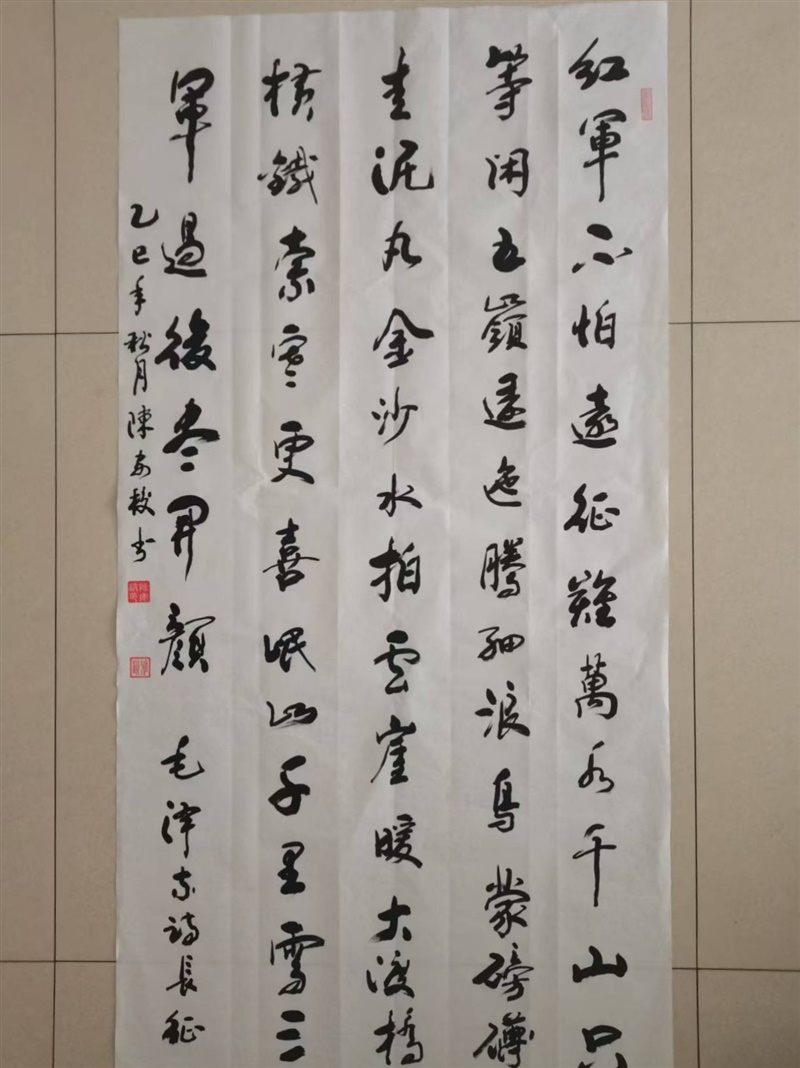 紅軍不怕遠征難萬水千山只
等閑五嶺逶迤騰細浪烏蒙磅礴
走泥丸金沙水拍云崖暖大渡橋
橫鐵索寒更喜岷山千里雪三
軍過後盡開顏 毛澤東詩長征
乙巳年秋月陳安书